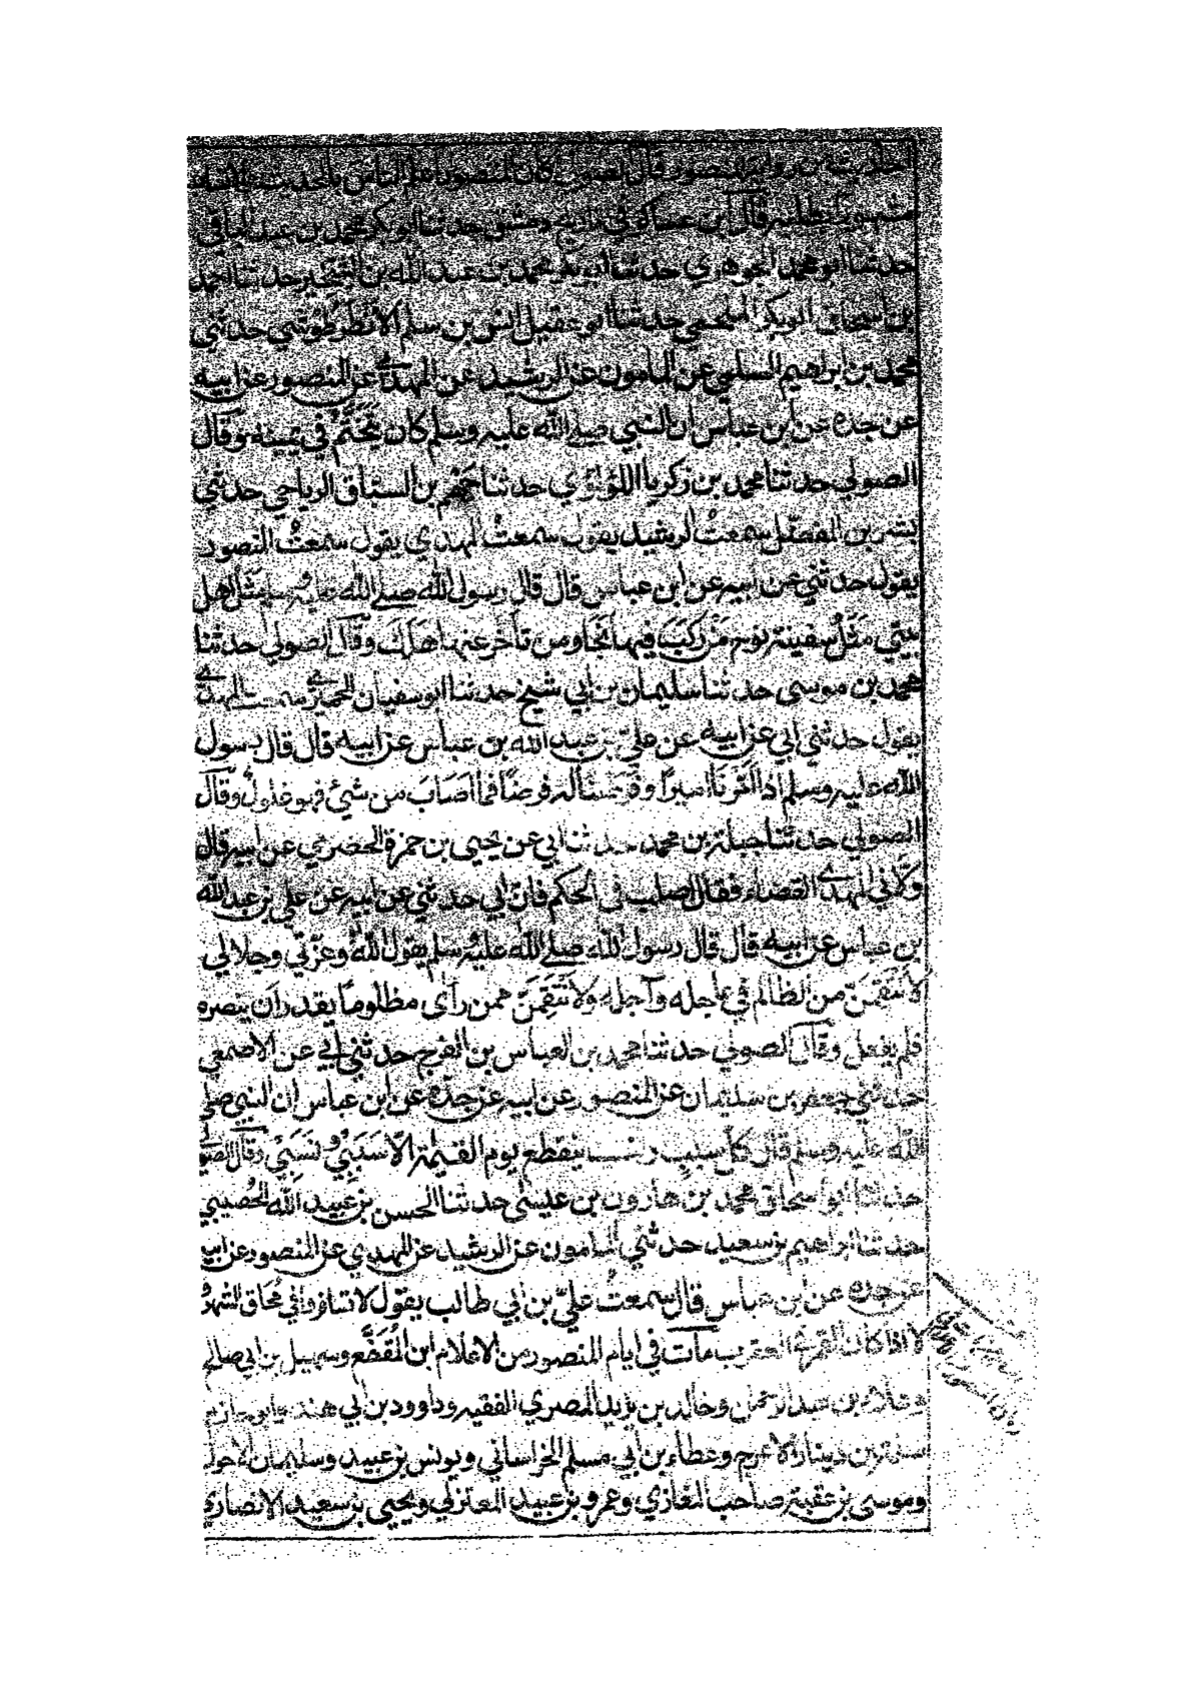 المنصور قال الصولي كان المنصور اعلم الناس بالحديث والانساب
مشهورا بطلبه قال ابن عساكر في تاريخ دمشق حدثنا ابو بكر محمد بن عبد الباقي
حدثنا ابو محمد الجوهري حدثنا ابو بكر محمد بن عبد الله بن الشخير حدثنا احمد
بن اسحاق ابو بكر الملحمي حدثنا ابو عقيل انس بن سلم الانطرطوشي حدثني
محمد بن ابراهيم السلمي عن المامون عن الرشيد عن المهدي عن المنصور عن ابيه
عن جده عن ابن عباس ان النبي صلى الله عليه وسلم كان يَتَخَتَّمُ في يمينه وقال
الصولي حدثنا محمد بن زكريا اللؤلؤي حدثنا جهم بن السباق الرياحي حدثني
بشر بن المفضل سمعتُ الرشيد يقول سمعتُ المهدي يقول سمعتُ المنصور
يقول حدثني عن ابيه عن ابن عباس قال قال رسول الله صلى الله عليه وسلم مثل اهل
بيتي مَثَلُ سفينة نوح مَنْ رَكِبَ فيها نَجَا ومن تأخر عنها هَلَكَ وقال الصولي حدثنا
محمد بن موسى حدثنا سليمان بن ابي شيخ حدثنا ابو سفيان الحميري سمعت المهدي
يقول حدثني ابي عن ابيه عن علي بن عبد الله بن عباس عن ابيه قال قال رسول
الله عليه وسلم اذا امّرنا اميرًا وفرضنا له فرضًا فما اَصَابَ من شيئ فهو غلولٌ وقال
الصولي حدثنا جبلة بن محمد حدثنا ابي عن يحيى بن حمزة الحضرمي عن ابيه قال
وَلّاني المهدي القضاء فقال اصلب في الحكم فان ابي حدثني عن ابيه عن علي بن عبد الله
بن عباس عن ابيه قال قال رسول الله صلى الله عليه وسلم يقول اللهُ وعزّتي وجلالي
لاَنتَقِمَنّ من الظالم في عاجله وآجله ولاَنتَقِمَنَّ ممن رأى مظلومًا يقدر ان ينصره
فلم يفعل وقال الصولي حدثنا محمد بن العباس بن الفرج حدثني ابي عن الاصمعي
حدثني جعفر بن سليمان عن المنصور عن ابيه عن جده عن ابن عباس ان النبي صلى
الله عليه وسلم قال كل سبب ونسب ينقطع يوم القيمة الّا سَبَبِيْ ونَسَبِيْ وقال الصولي
حدثنا ابو اسحاق محمد بن هارون بن عيسى حدثنا الحسن بن عبيد الله الحُصيبي
حدثنا ابراهيم بن سعيد حدثني المامون عن الرشيد عن المهدي عن المنصور عن ابيه
عن جده عن ابن عباس قال سمعتُ علي بن ابي طالب يقول لا تسافروا في مُحَاق الشهر و
لا اذا كان القمر في العقرب مات في ايام المنصور من الاعلام ابن المُقَفَّع وسهيل بن ابي صالح
وعلاء بن عبد الرحمن وخالد بن يزيد المصري الفقيه وداوود بن ابي هند وابو حازم
سلمة بن دينار الاعرج وعطاء بن ابي مسلم الخراساني ويونس بن عبيد وسليمان الاحول
وموسى بن عقبة صاحب المغازي وعمرو بن عبيد المعتزلي ويحيى بن سعيد الانصاري